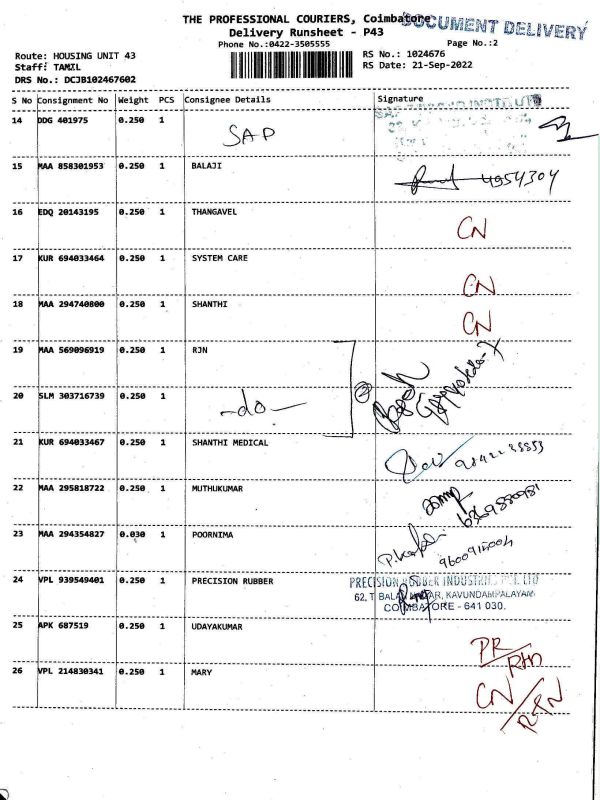 THE PROFESSIONAL COURIERS, Coimbatore
DOCUMENT DELIVERY
Delivery Runsheet - P43
Phone No.:0422-3505555
Page No.:2
Route: HOUSING UNIT 43
RS No.: 1024676
Staff: TAMIL
RS Date: 21-Sep-2022
DRS No.: DCJB102467602
S No Consignment No Weight PCS Consignee Details Signature
14 DDG 401975 0.250 1 SAP
15 MAA 858301953 0.250 1 BALAJI 4954304
16 EDQ 20143195 0.250 1 THANGAVEL CN
17 KUR 694033464 0.250 1 SYSTEM CARE CN
18 MAA 294740800 0.250 1 SHANTHI CN
19 MAA 569096919 0.250 1 RJN
20 SLM 303716739 0.250 1 -do- 2
21 KUR 694033467 0.250 1 SHANTHI MEDICAL
22 MAA 295818722 0.250 1 MUTHUKUMAR
23 MAA 294354827 0.030 1 POORNIMA
24 VPL 939549401 0.250 1 PRECISION RUBBER PRECISION RUBBER INDUSTRIES PVT. LTD
62, T BALAJI NAGAR, KAVUNDAMPALAYAM
COIMBATORE - 641 030.
25 APK 687519 0.250 1 UDAYAKUMAR PR/
26 VPL 214830341 0.250 1 MARY CN/RTN